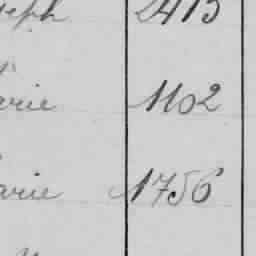 seph 2415
arie 1102
arie 1756